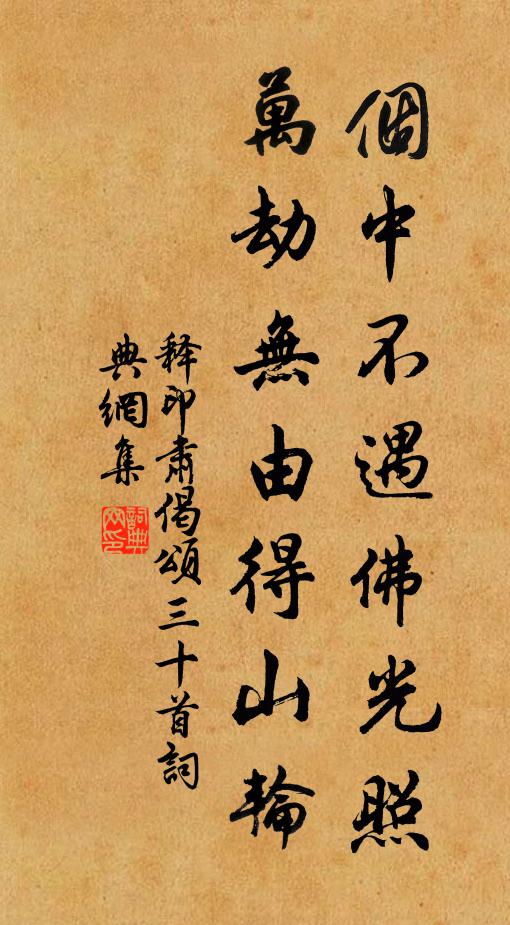 個中不遇佛光照
萬劫無由得山輪
釋印肅偈頌三十首詞
典網集
詞典
网印